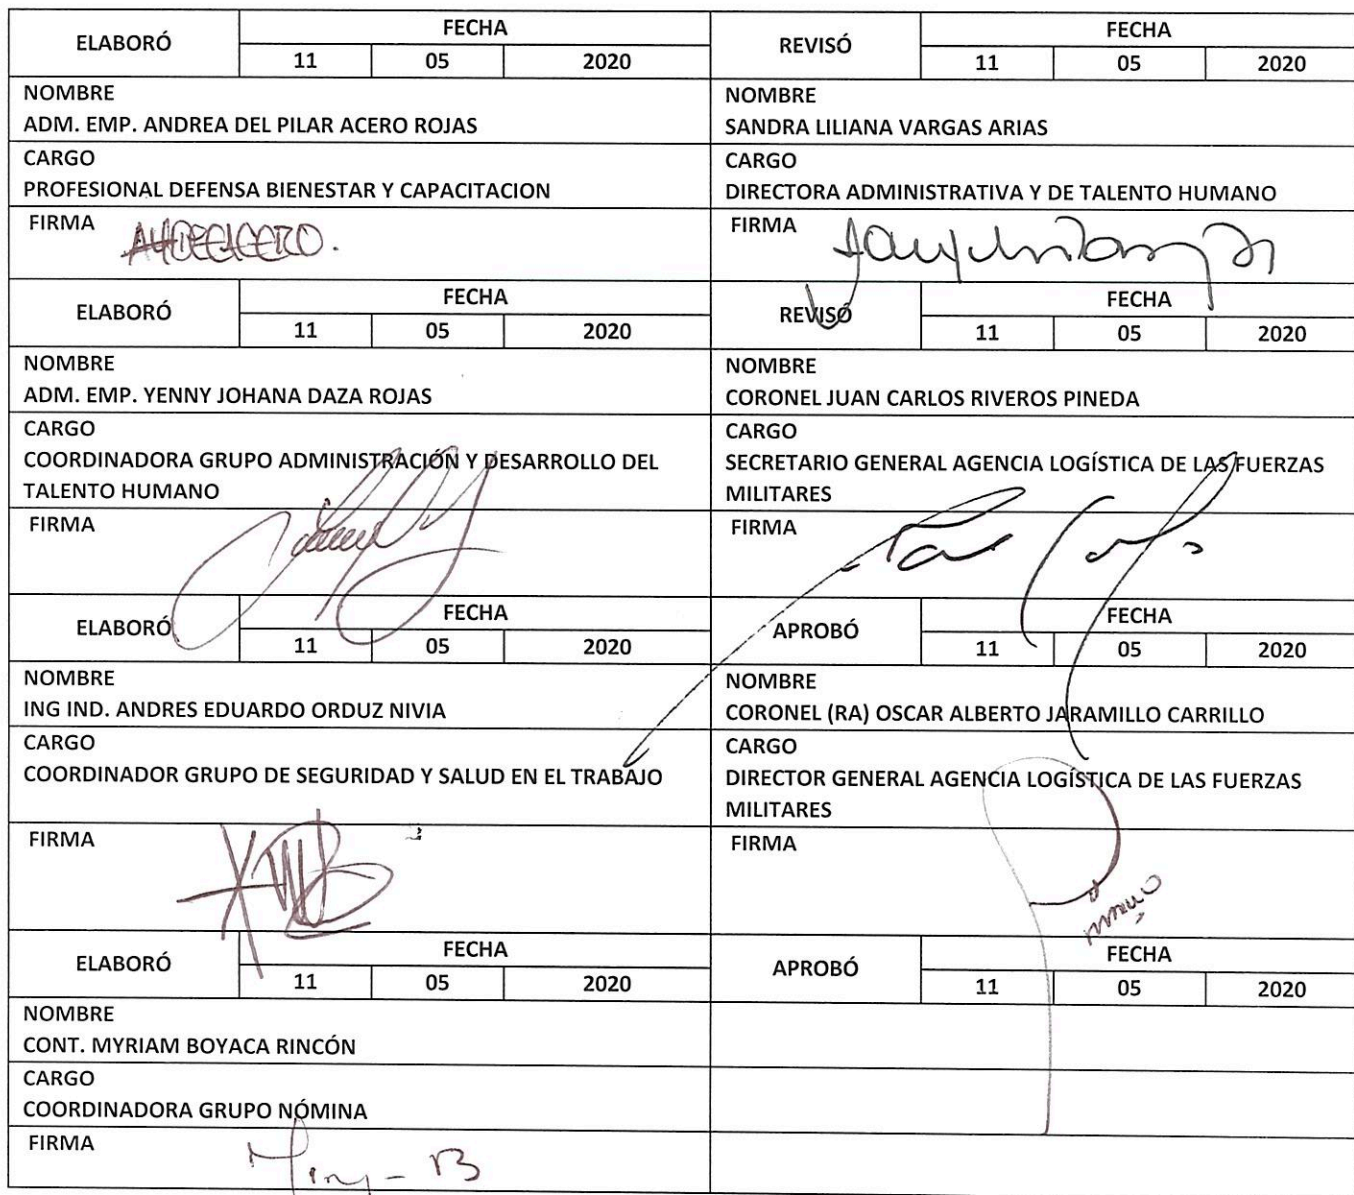 ELABORÓ FECHA
11 05 2020
NOMBRE
ADM. EMP. ANDREA DEL PILAR ACERO ROJAS
CARGO
PROFESIONAL DEFENSA BIENESTAR Y CAPACITACION
FIRMA
REVISÓ FECHA
11 05 2020
NOMBRE
SANDRA LILIANA VARGAS ARIAS
CARGO
DIRECTORA ADMINISTRATIVA Y DE TALENTO HUMANO
FIRMA
ELABORÓ FECHA
11 05 2020
NOMBRE
ADM. EMP. YENNY JOHANA DAZA ROJAS
CARGO
COORDINADORA GRUPO ADMINISTRACIÓN Y DESARROLLO DEL
TALENTO HUMANO
FIRMA
REVISÓ FECHA
11 05 2020
NOMBRE
CORONEL JUAN CARLOS RIVEROS PINEDA
CARGO
SECRETARIO GENERAL AGENCIA LOGÍSTICA DE LAS FUERZAS
MILITARES
FIRMA
ELABORÓ FECHA
11 05 2020
NOMBRE
ING IND. ANDRES EDUARDO ORDUZ NIVIA
CARGO
COORDINADOR GRUPO DE SEGURIDAD Y SALUD EN EL TRABAJO
FIRMA
APROBÓ FECHA
11 05 2020
NOMBRE
CORONEL (RA) OSCAR ALBERTO JARAMILLO CARRILLO
CARGO
DIRECTOR GENERAL AGENCIA LOGÍSTICA DE LAS FUERZAS
MILITARES
FIRMA
ELABORÓ FECHA
11 05 2020
NOMBRE
CONT. MYRIAM BOYACA RINCÓN
CARGO
COORDINADORA GRUPO NÓMINA
FIRMA
APROBÓ FECHA
11 05 2020